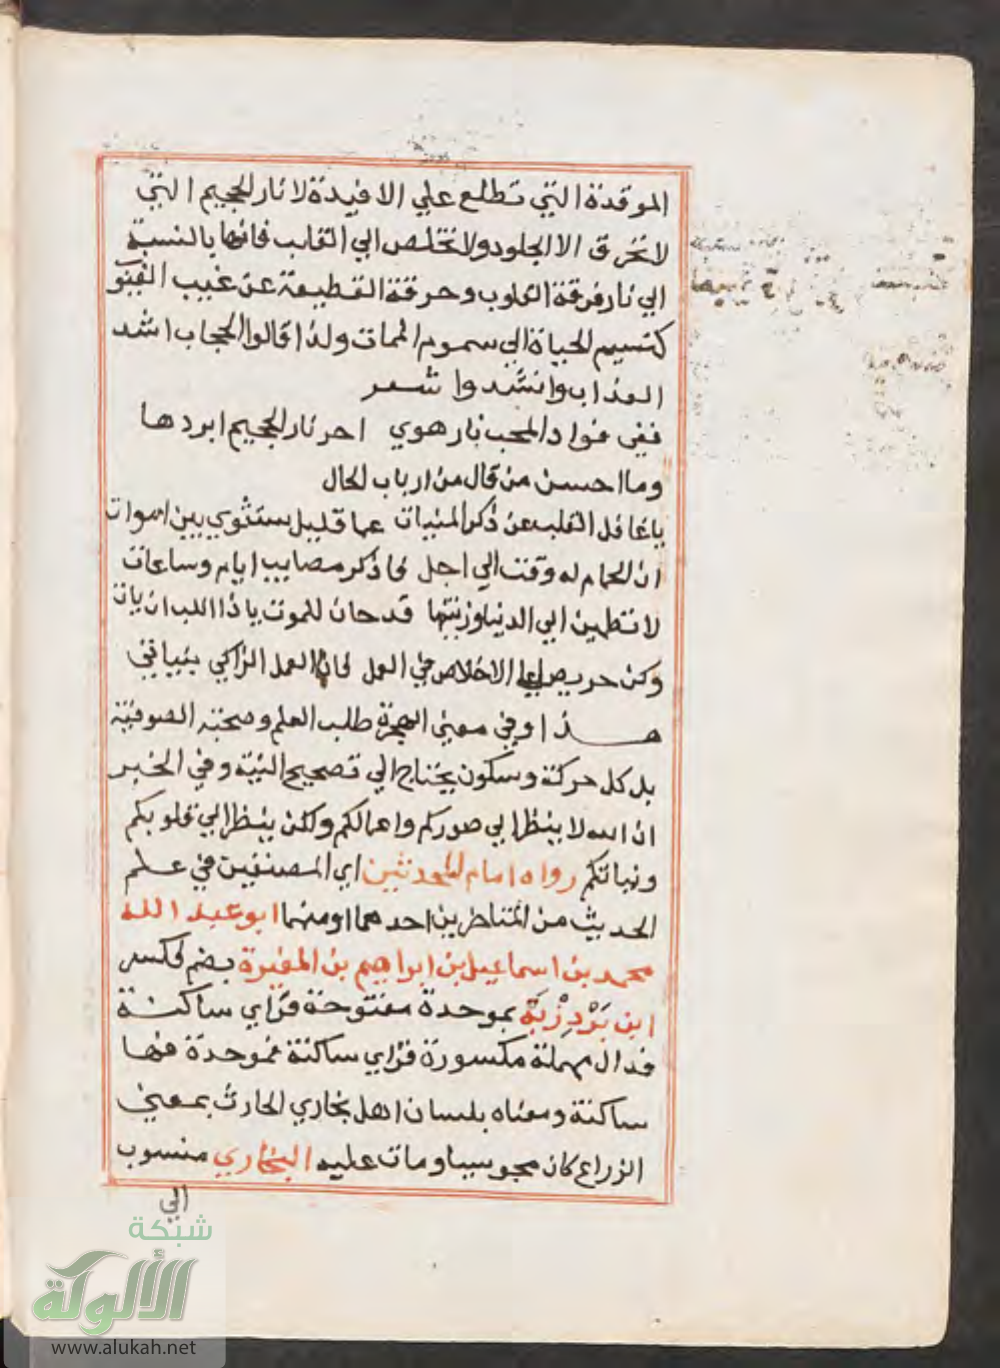 الموقدة التي تطلع علي الافيدة لا نار الجحيم التي
لا تحرق الا الجلود ولا تخلص الي القلب فانها بالنسبة
الي نار فرقة القلوب وحرقة القطيعة عن غيب الغيو
كنسيم الحياة الي سموم الممات ولذا قالوا الحجاب اشد
العذاب وانشدوا شعر
ففي فواد المحب نار هوي احر نار الجحيم ابردها
وما احسن من قال من ارباب الحال
يا غافل القلب عن ذكر المنيات عما قليل ستثوي بين اموات
ان الحمام له وقت الي اجل فاذكر مصايب ايام وساعات
لا تطمين الي الدنيا وزينتها قد حان للموت يا ذا اللب ان يات
وكن حريصا علي الاخلاص في العمل فان العمل الزاكي
هذا وفي معني الهجرة طلب العلم وصحبة الصوفية
بل كل حركة وسكون يحتاج الي تصحيح النية وفي الخبر
ان الله لا ينظر الي صوركم واعمالكم ولكن ينظر الي قلوبكم
ونياتكم رواه امام المحدثين اي المصنفين في علم
الحديث من المتاخرين احدهما او منهما ابو عبد الله
محمد بن اسماعيل بن ابراهيم بن المغيرة بضم فكسر
ابن بَرْدِزْبَة بموحدة مفتوحة فراي ساكنة
فدال مهملة مكسورة فزاي ساكنة فموحدة فها
ساكنة ومعناه بلسان اهل بخاري الحارث بمعني
الزراع كان مجوسيا ومات عليه البخاري منسوب
الي
شبكة
الألوكة
www.alukah.net